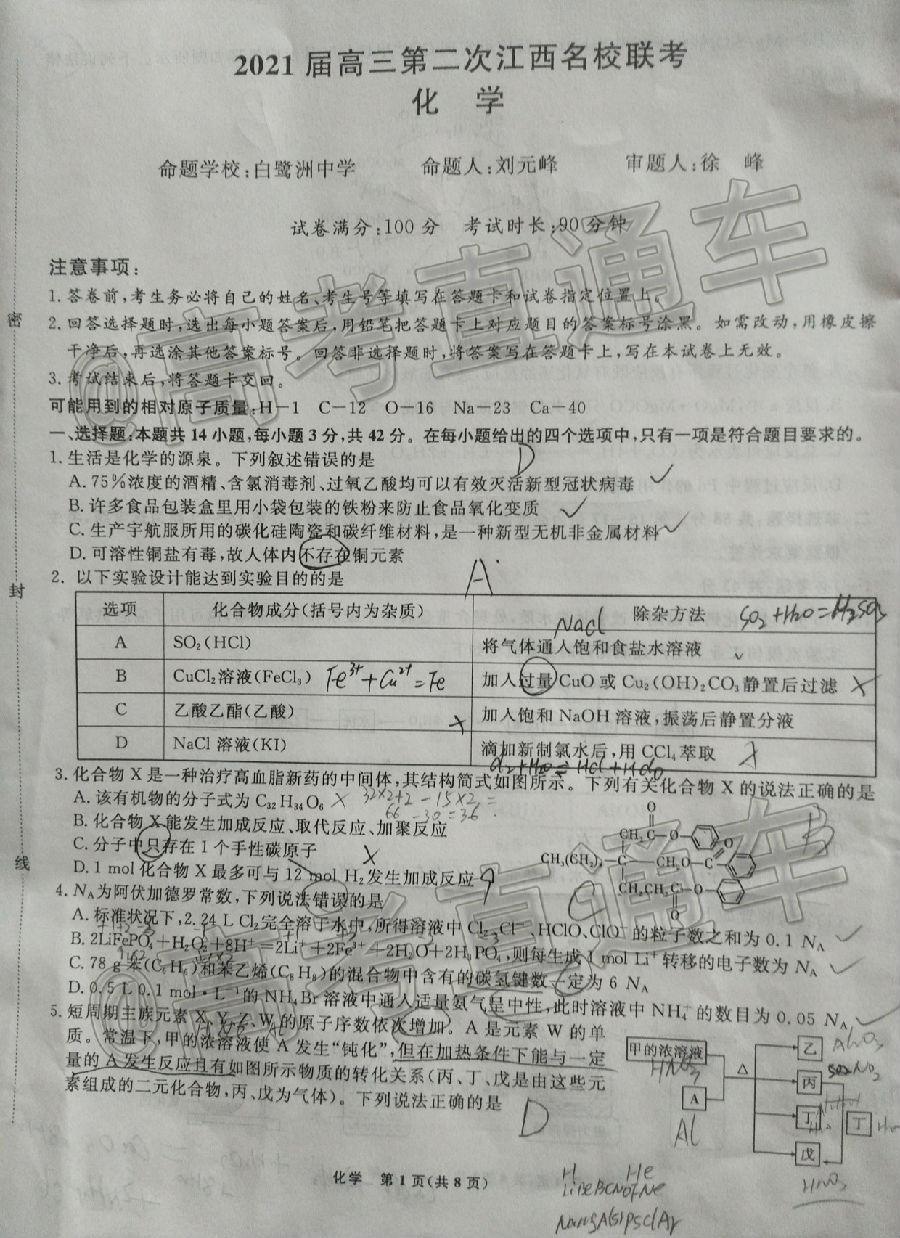 2021届高三第二次江西名校联考
化 学
命题学校:白鹭洲中学 命题人:刘元峰 审题人:徐 峰
试卷满分:100分 考试时长:90分钟
注意事项:
1.答卷前,考生务必将自己的姓名、考生号等填写在答题卡和试卷指定位置上。
2.回答选择题时,选出每小题答案后,用铅笔把答题卡上对应题目的答案标号涂黑。如需改动,用橡皮擦
干净后,再选涂其他答案标号。回答非选择题时,将答案写在答题卡上,写在本试卷上无效。
3.考试结束后,将答题卡交回。
可能用到的相对原子质量:H-1 C-12 O-16 Na-23 Ca-40
一、选择题:本题共14小题,每小题3分,共42分。在每小题给出的四个选项中,只有一项是符合题目要求的。
1.生活是化学的源泉。下列叙述错误的是 D
A.75%浓度的酒精、含氯消毒剂、过氧乙酸均可以有效灭活新型冠状病毒
B.许多食品包装盒里用小袋包装的铁粉来防止食品氧化变质
C.生产宇航服所用的碳化硅陶瓷和碳纤维材料,是一种新型无机非金属材料
D.可溶性铜盐有毒,故人体内不存在铜元素
2.以下实验设计能达到实验目的的是 A
选项 化合物成分(括号内为杂质) 除杂方法 SO₂+H₂O=H₂SO₃
A SO₂(HCl) 将气体通入饱和食盐水溶液 NaCl
B CuCl₂溶液(FeCl₃) Fe³⁺+Cu²⁺=Fe 加入过量CuO或Cu₂(OH)₂CO₃静置后过滤
C 乙酸乙酯(乙酸) 加入饱和NaOH溶液,振荡后静置分液
D NaCl溶液(KI) 滴加新制氯水后,用CCl₄萃取
Cl₂+H₂O⇌HCl+HClO
3.化合物X是一种治疗高血脂新药的中间体,其结构简式如图所示。下列有关化合物X的说法正确的是
A.该有机物的分子式为C₃₂H₃₄O₆ 32×2+2-15×2=
66-30=36
B.化合物X能发生加成反应、取代反应、加聚反应 B
C.分子中只存在1个手性碳原子
D.1 mol化合物X最多可与12 mol H₂发生加成反应 9
4.N_A为阿伏加德罗常数,下列说法错误的是 C
A.标准状况下,2.24 L Cl₂完全溶于水中,所得溶液中Cl₂、Cl⁻、HClO、ClO⁻的粒子数之和为0.1 N_A
B.2LiFePO₄+H₂O₂+8H⁺=2Li⁺+2Fe³⁺+2H₂O+2H₃PO₄,则每生成1 mol Li⁺转移的电子数为N_A
C.78 g苯(C₆H₆)和苯乙烯(C₈H₈)的混合物中含有的碳氢键数一定为6 N_A
D.0.5 L 0.1 mol·L⁻¹的NH₄Br溶液中通入适量氨气呈中性,此时溶液中NH₄⁺的数目为0.05 N_A
5.短周期主族元素X、Y、Z、W的原子序数依次增加。A是元素W的单
质。常温下,甲的浓溶液使A发生“钝化”,但在加热条件下能与一定
量的A发生反应且有如图所示物质的转化关系(丙、丁、戊是由这些元
素组成的二元化合物,丙、戊为气体)。下列说法正确的是 D
甲的浓溶液
HNO₃
A
Al
△
乙
丙
丁
戊
丁
HNO₃
化学 第1页(共8页)
H He
LiBeBCNOFNe
NaMgAlSiPSClAr
密
封
线
@高考直通车
@高考直通车